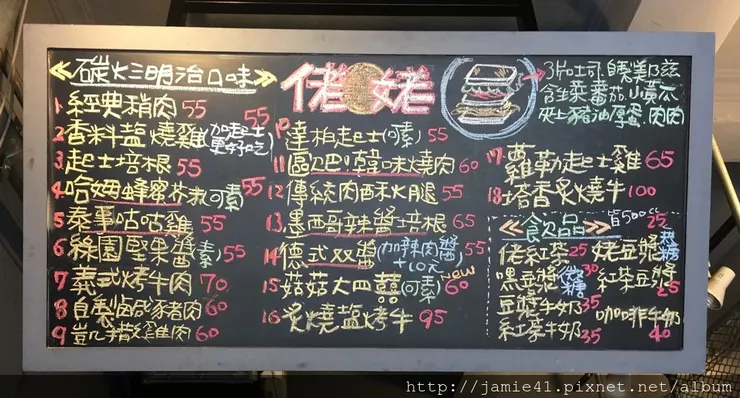 碳火三明治口味
佬姥
3片土司 自製美乃滋
含生菜番茄小黃瓜
夾土豬油厚蛋 肉肉
1. 經典稍肉 55
2. 香料鹽燒雞(加起士更好吃) 55
3. 起士培根 55
4. 哈姆蜂蜜芥末(可素) 55
5. 泰事咕咕雞 55
6. 綠園堅果醬(素) 55
7 義式烤牛肉 70
8 自製鹹豬肉 60
9 凱撒雞肉 60
10 達柏起士(素) 55
11 區次巴!韓味燒肉 60
12 傳統肉酥火腿 55
13. 墨西哥辣醬培根 65
14. 德式双醬(加辣肉醬+10元) 55
15 菇菇大四囍(可素) 60 new
16 炙燒鹽烤牛 95
17. 蘿勒起士雞 65
18. 塔香炙燒牛 100
飲品 皆500cc
佬紅茶 25
姥豆漿 無糖 25
黑豆漿 微糖 30
紅茶豆漿 25
豆漿牛奶 35
紅茶牛奶 35
咖啡牛奶 40
http://jamie41.pixnet.net/album